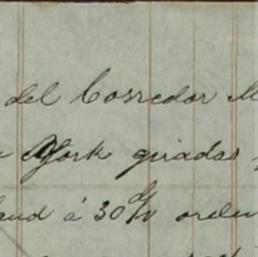 del Corredor M
York giradas
aud á 30 d/v orden